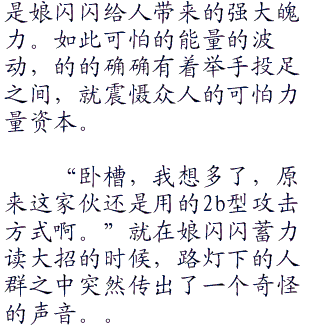 是娘闪闪给人带来的强大魄
力。如此可怕的能量的波
动，的的确确有着举手投足
之间，就震慑众人的可怕力
量资本。
“卧槽，我想多了，原
来这家伙还是用的2b型攻击
方式啊。”就在娘闪闪蓄力
读大招的时候，路灯下的人
群之中突然传出了一个奇怪
的声音。。